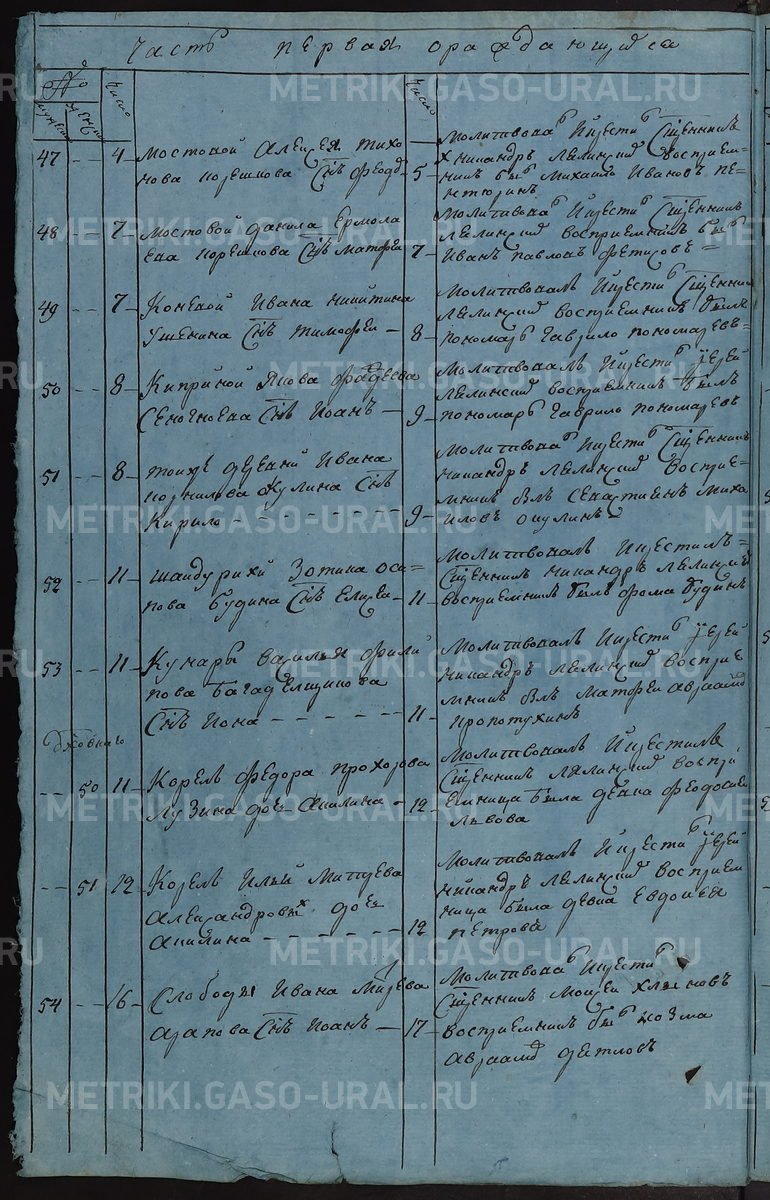 Часть первая ораждающихся
№
мужеск женск
число
число
47 4 Мостовой Алексея Тихо
нова Порешнова Снъ Феодо 5
Молитвовалъ и крестилъ Священникъ
Никандръ Лялицкий восприем-
никъ былъ Михаило Ивановъ
48 7 Мостовой Данила Ермола
ева Порешнова Снъ Матфеи 7
Молитвовалъ и крестилъ Священникъ
Лялицкий восприемникъ былъ
Иванъ Павловъ Фетисовъ
49 7 Коневой Ивана Никитина
Ушенина Снъ Тимофеи 8
Молитвовалъ и крестилъ Священникъ
Лялицкий восприемникъ былъ
пономарь Гаврило Пономаревъ
50 8 Киприной Якова Фадеева
Сеногноева Снъ Иоанъ 9
Молитвовалъ и крестилъ иерей
Лялицкий восприемникъ былъ
пономарь Гаврило Пономаревъ
51 8 тоижъ деревни Ивана
Корнилова Акулина Снъ
Кирило 9
Молитвовалъ и крестилъ Священникъ
Никандръ Лялицкий восприе-
мникъ былъ Севастиенъ Миха
иловъ Окулинъ
52 11 Шандурихи Зотика Оси-
пова Будина Снъ Елисеи 11
Молитвовалъ и крестилъ
Священникъ Никандръ Лялицкий
восприемникъ былъ Фома Будинъ
53 11 Кучары Василья Фили
пова Багадельщикова
Снъ Иона 11
Молитвовалъ и крестилъ иерей
Никандръ Лялицкий восприе
мникъ былъ Матфеи Авраамов
Пропотухинъ
50 11 Корелъ Федора Прохорова
Лузина дочь Акилина 12
Молитвовалъ и крестилъ
Священникъ Лялицкий воспри
емница была девка Феодосия
Львова
51 12 Корелъ Ильи Матвеева
Александровыхъ дочь
Акилина 12
Молитвовалъ и крестилъ иерей
Никандръ Лялицкий восприем
ница была девка Евдокия
Петрова
54 16 Слободы Ивана
Арапова Снъ Иоанъ 17
Молитвовалъ и крестилъ
Священникъ Моисеи Хлыновъ
восприемникъ былъ Козма
Авраамов Детловъ
METRIKI.GASO-URAL.RU